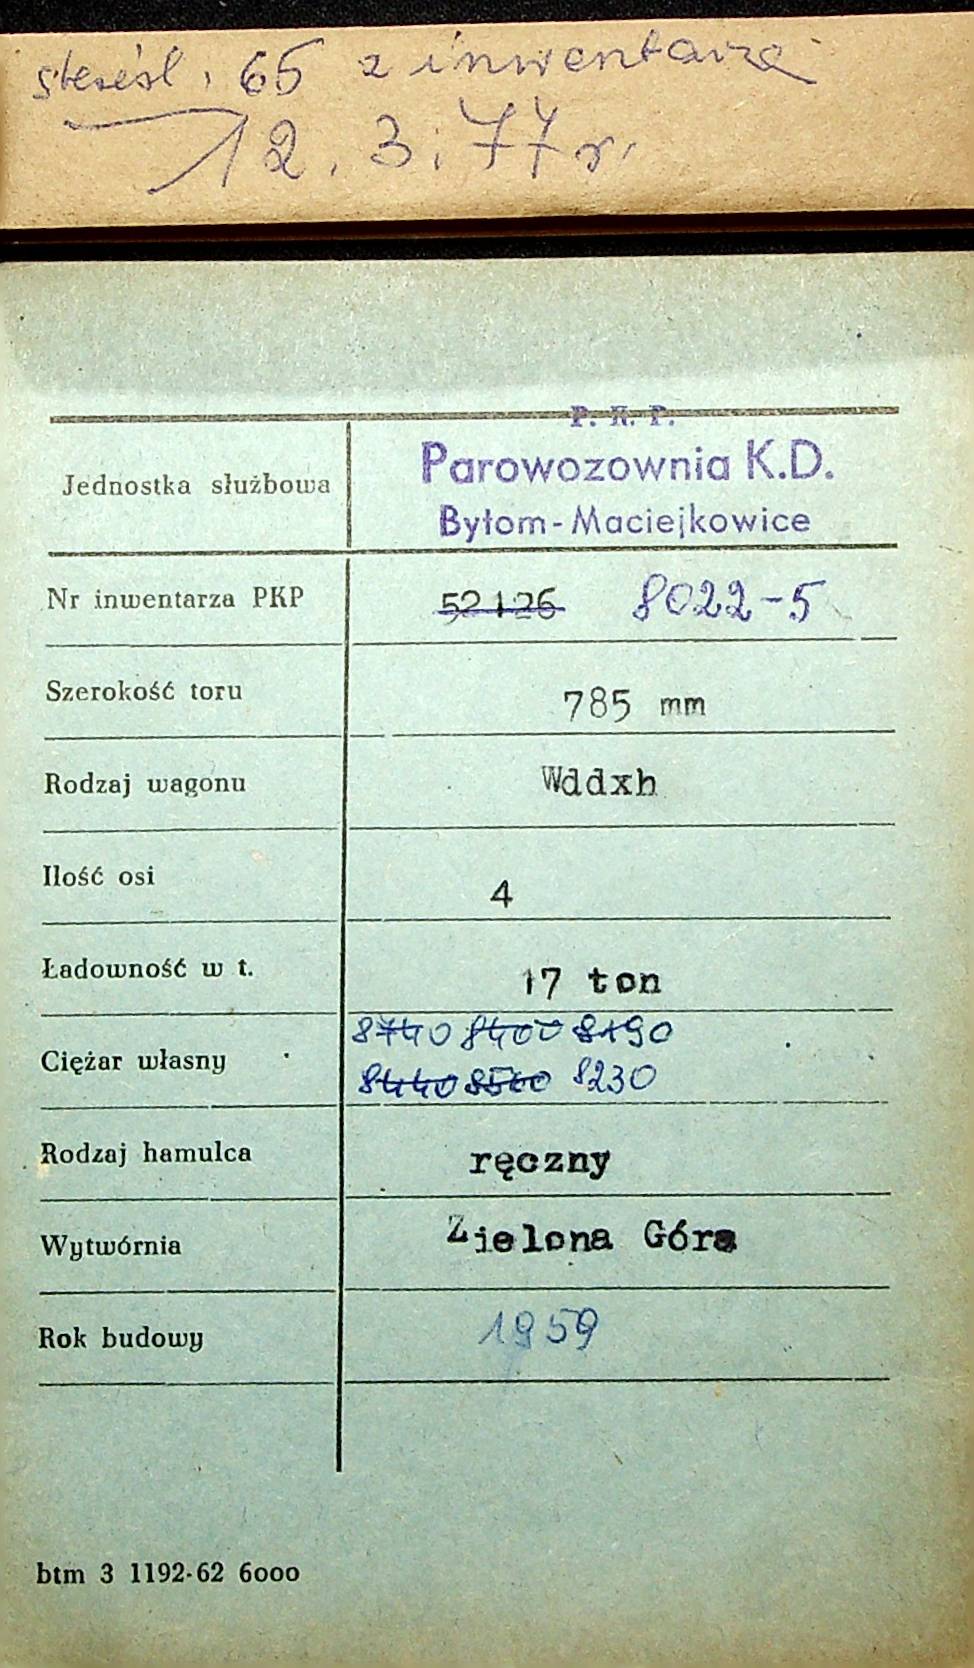 skreśl. 65 z inwentarza
12.3.77 r.
P. K. P.
Parowozownia K.D.
Bytom-Maciejkowice
Jednostka służbowa
Nr inwentarza PKP 52126 8022-5
Szerokość toru 785 mm
Rodzaj wagonu Wddxh
Ilość osi 4
Ładowność w t. 17 ton
8740 8400 8190
Ciężar własny
8440 8500 8230
Rodzaj hamulca ręczny
Wytwórnia Zielona Góra
Rok budowy 1959
btm 3 1192-62 6000